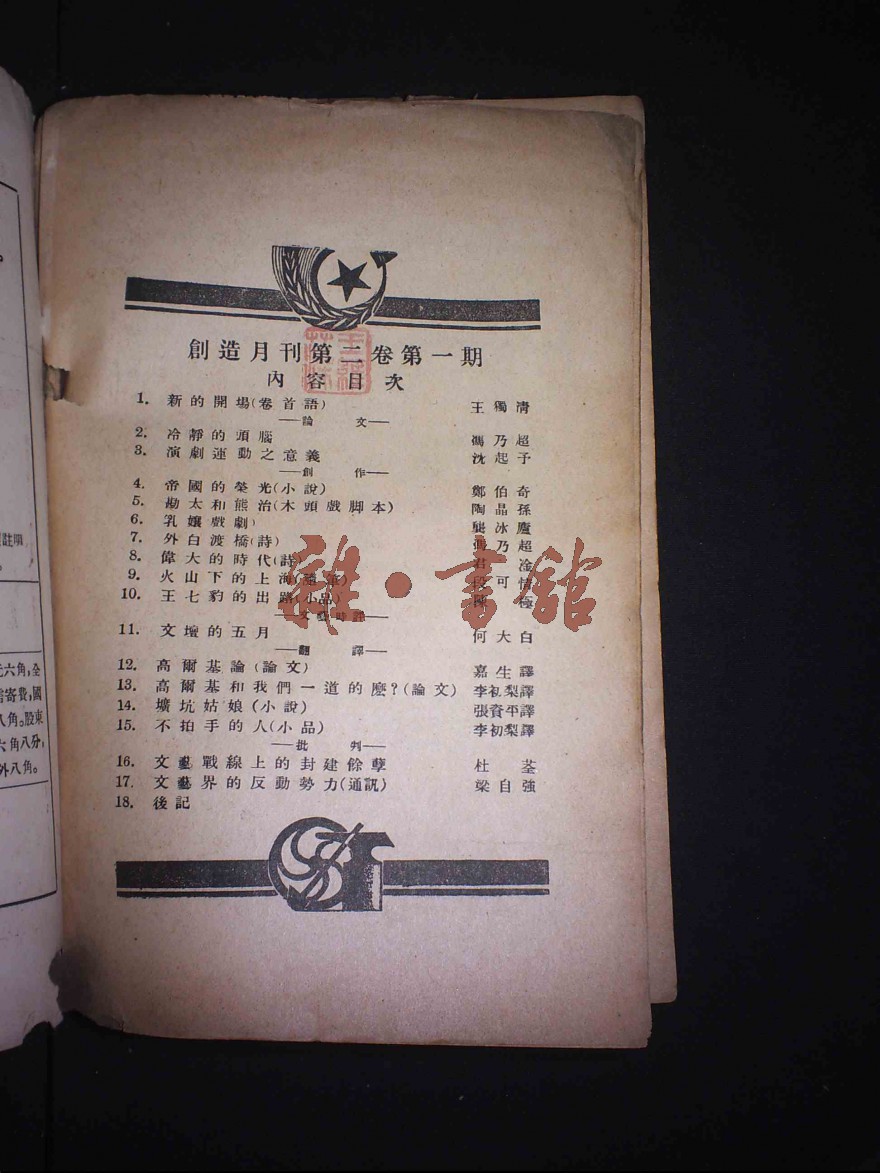 創造月刊第二卷第一期
內容目次
1. 新的開場(卷首語) 王獨清
——論文——
2. 冷靜的頭腦 馮乃超
3. 演劇運動之意義 沈起予
——創作——
4. 帝國的榮光(小說) 鄭伯奇
5. 勘太和熊治(木頭戲脚本) 陶晶孫
6. 乳孃戲劇) 龔冰廬
7. 外白渡橋(詩) 馮乃超
8. 偉大的時代(詩) 君淦
9. 火山下的上海(隨筆) 段可情
10. 王七豹的出路(小品) 陳極
——文藝時評——
11. 文壇的五月 何大白
——翻譯——
12. 高爾基論(論文) 嘉生譯
13. 高爾基和我們一道的麽?(論文) 李初梨譯
14. 壙坑姑娘(小說) 張資平譯
15. 不拍手的人(小品) 李初梨譯
——批判——
16. 文藝戰線上的封建餘孽 杜荃
17. 文藝界的反動勢力(通訊) 梁自強
18. 後記
雜·書館
元六角,全
寄費,國
八角。股東
六角八分,
外八角。